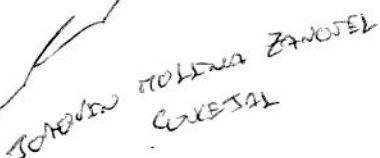 JOAQUIN MOLINA ZANOTEL
CONCEJAL